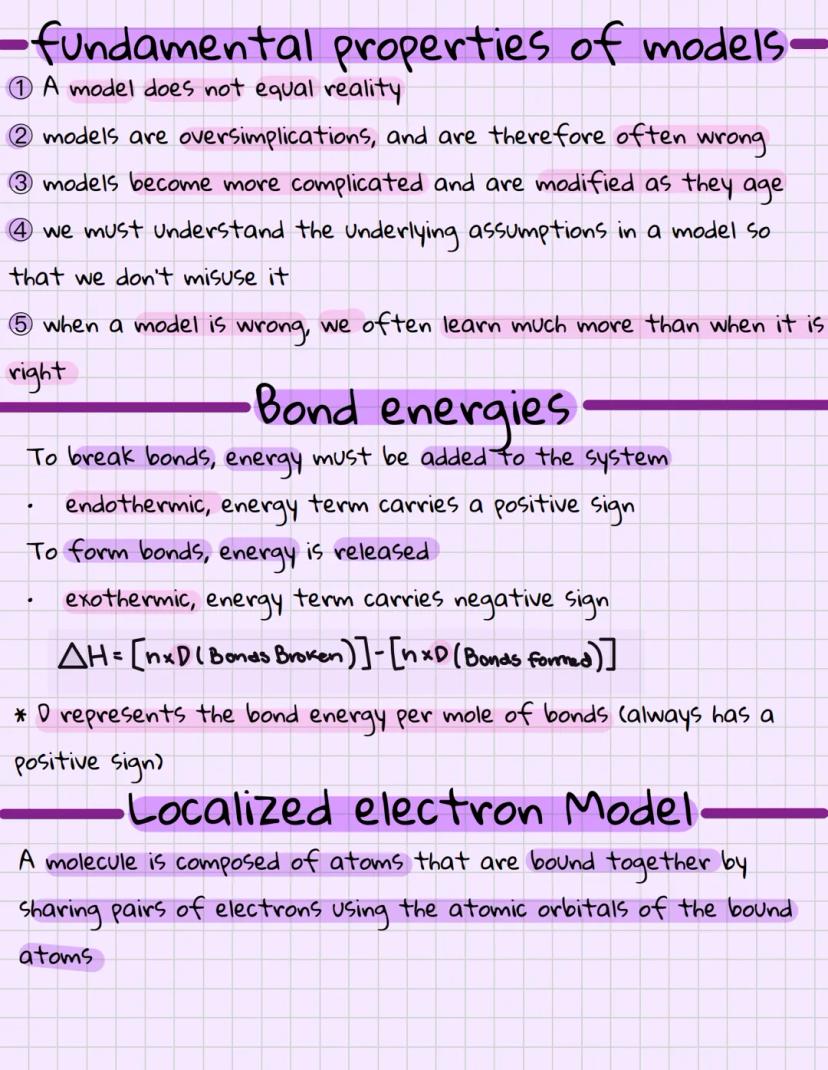 fundamental properties of models
① A model does not equal reality
② models are oversimplications, and are therefore often wrong
③ models become more complicated and are modified as they age
④ we must understand the underlying assumptions in a model so
that we don't misuse it
⑤ when a model is wrong, we often learn much more than when it is
right
Bond energies
To break bonds, energy must be added to the system
· endothermic, energy term carries a positive sign
To form bonds, energy is released
· exothermic, energy term carries negative sign
△H = [n×D (Bonds Broken)] - [n×D (Bonds formed)]
* D represents the bond energy per mole of bonds (always has a
positive sign)
Localized electron Model
A molecule is composed of atoms that are bound together by
sharing pairs of electrons using the atomic orbitals of the bound
atoms